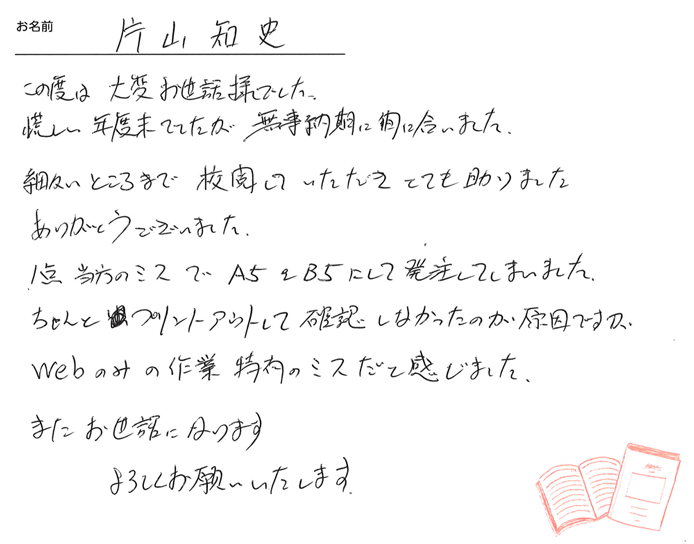 お名前
片山知史
この度は 大変お世話様でした。
慌しい年度末でしたが 無事納期に間に合いました。
細かいところまで 校閲して いただき とても助りました
ありがとうございました。
1点 当方のミスで A5をB5にして発注してしまいました。
ちゃんと プリントアウトして確認しなかったのが原因ですが、
Webのみの作業特有のミスだと感じました。
またお世話になります
よろしくお願いいたします。